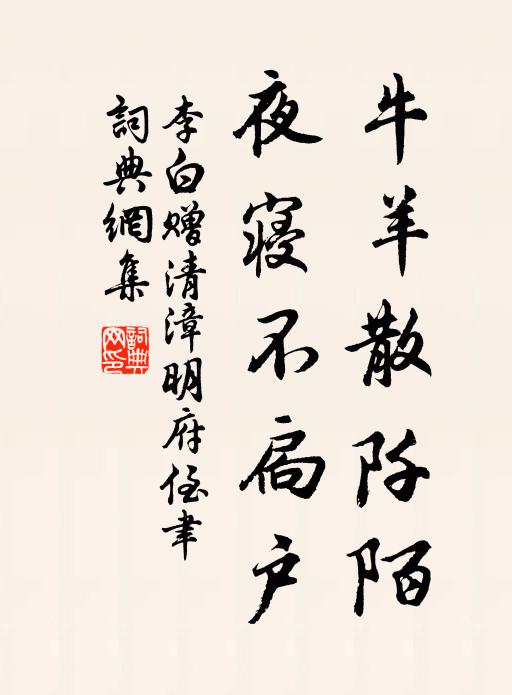 牛羊散阡陌
夜寝不扃户
李白赠清漳明府侄聿
詞典網集
詞典網印